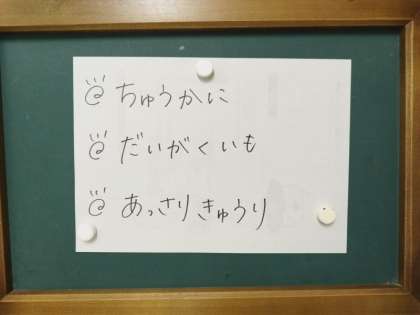 @ちゅうかに
@だいがくいも
@あっさりきゅうり